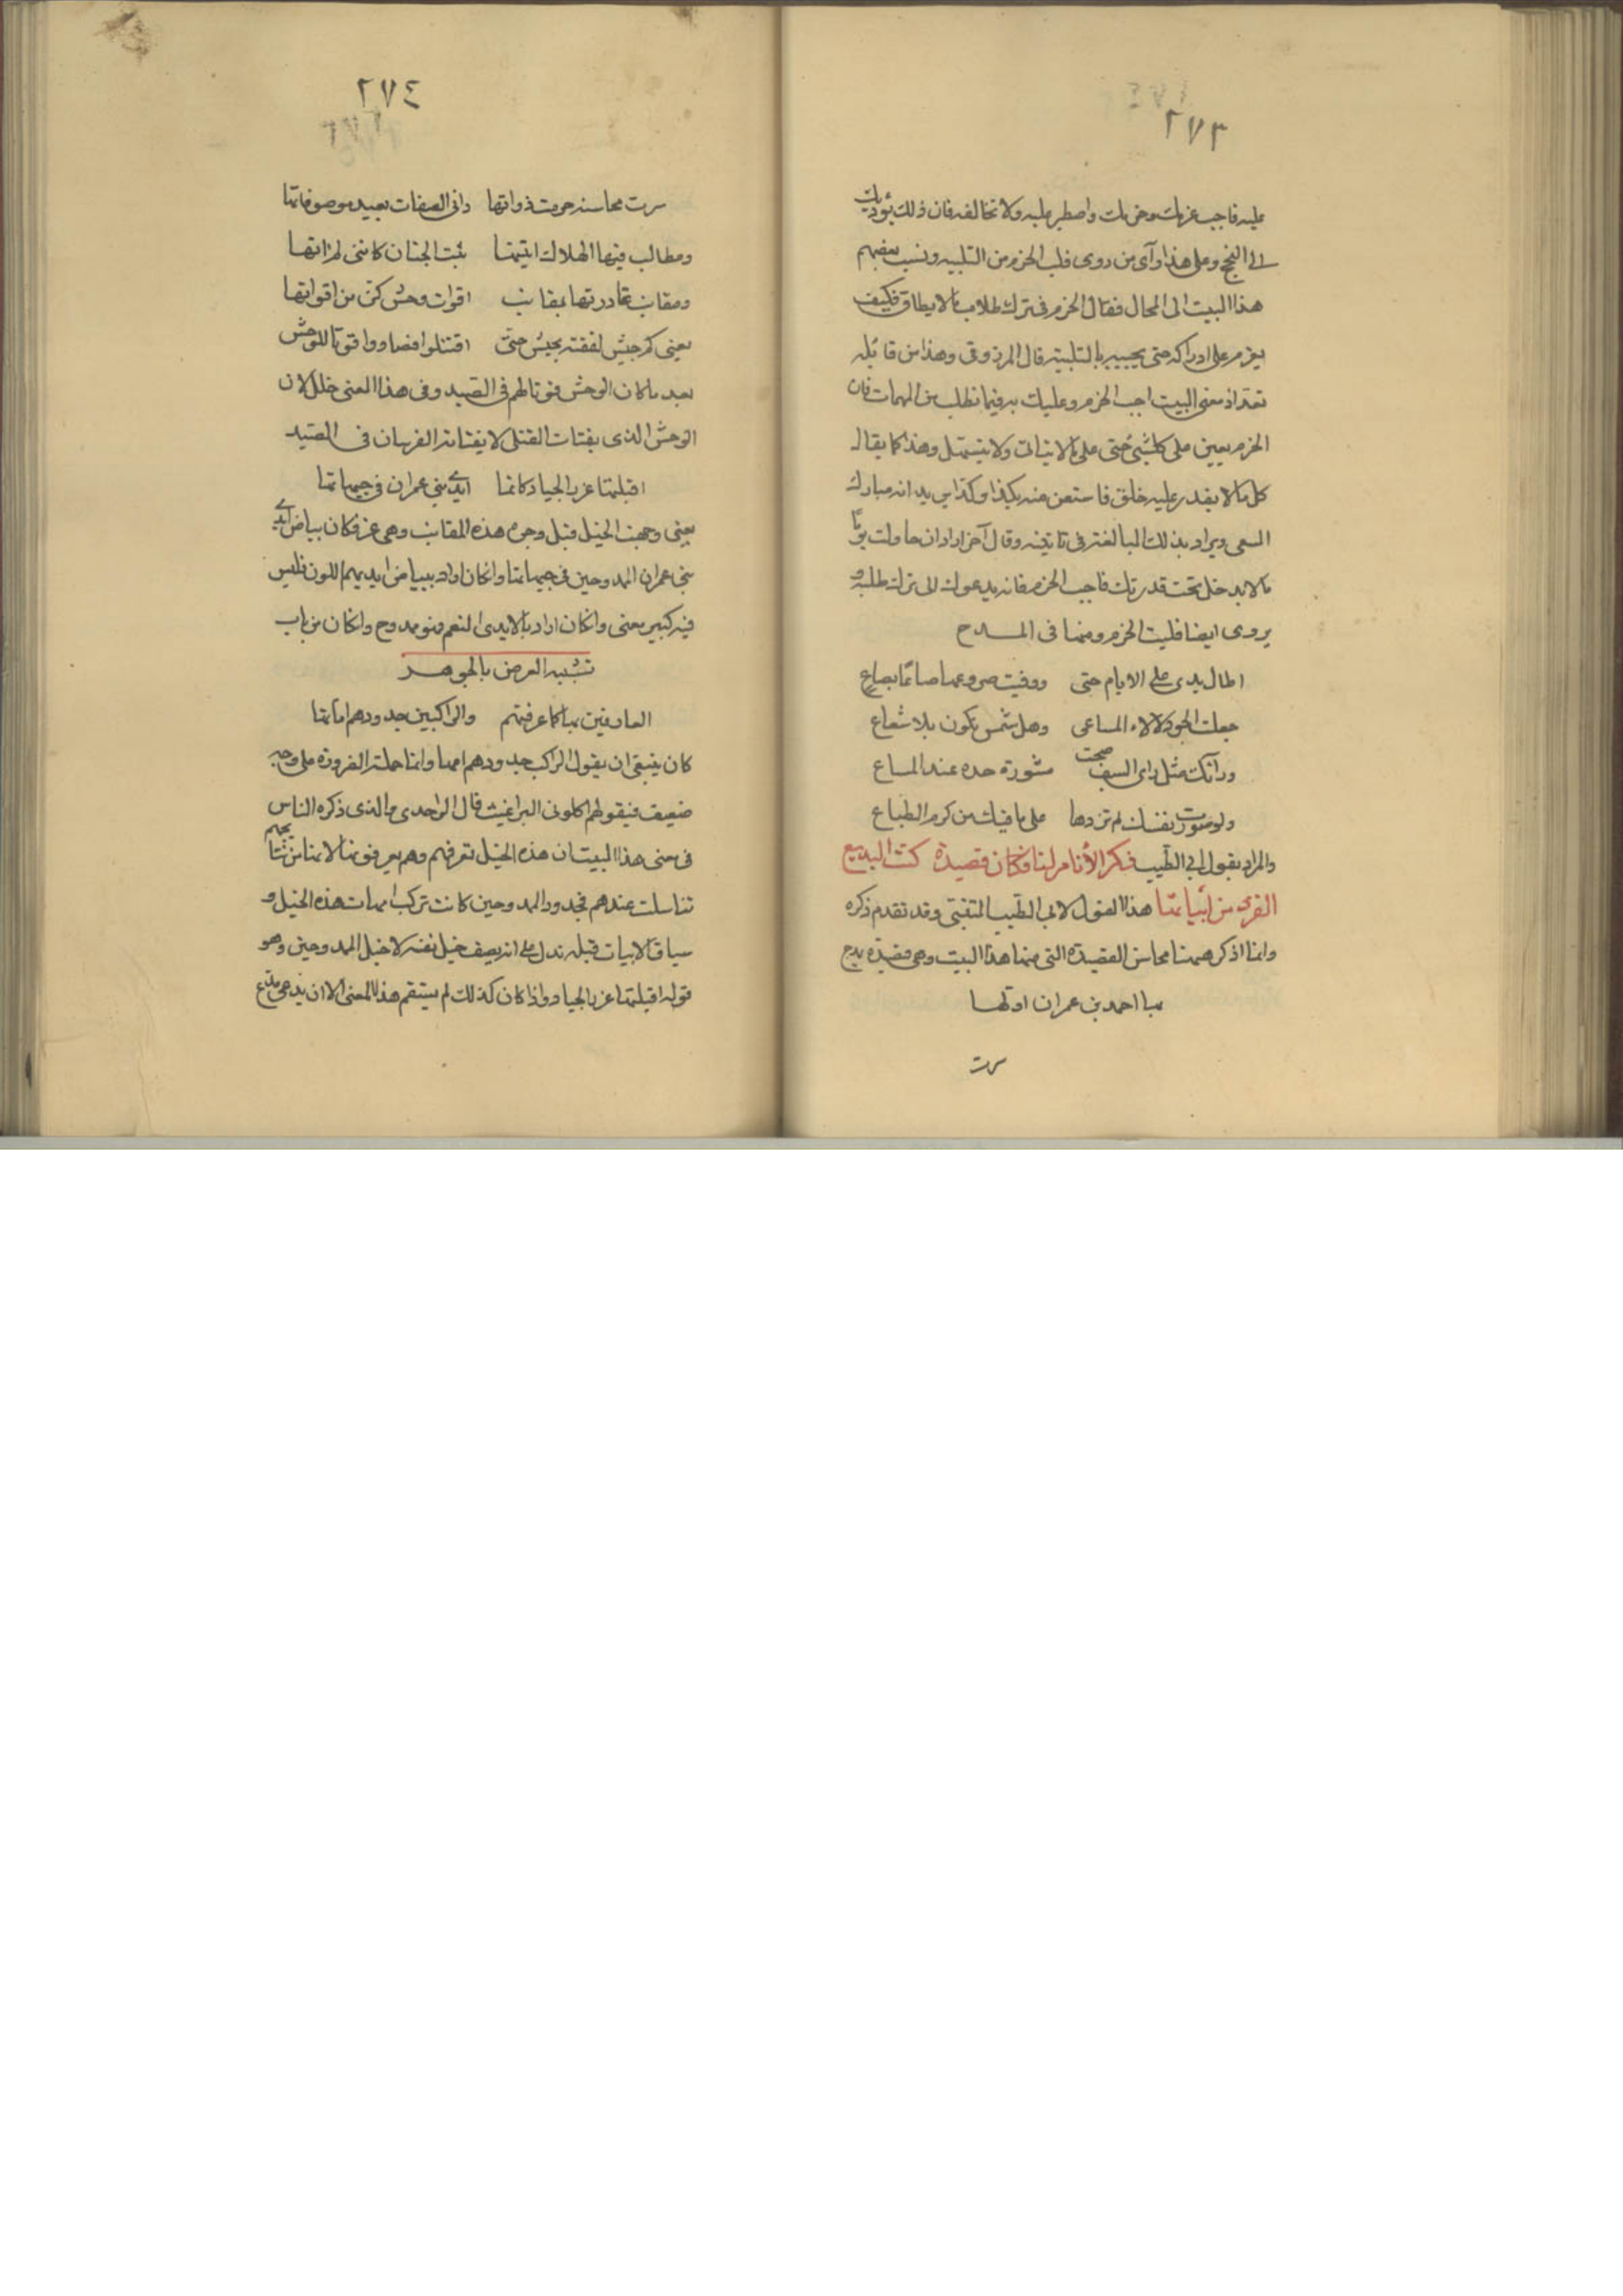 ٢٧٣
عليه فاجب عزمك وحزمك واصطبر عليه ولا تخالفه فان ذلك يؤديك
الى النجح وعلى هذا رأى من روى فلب الحزم من التلبيه ونسب بعضهم
هذا البيت الى المحال فقال الحزم فى ترك طلاب ما لا يطاق فكيف
يعزم على ادراكه حتى يجيبه بالتلبية قال المرزوقى وهذا من قائله
اذ معنى البيت اجب الحزم وعليك به فيما تطلب من المهمات فان
الحزم يعين على كل شئ حتى على ما لا ينال ولا يتسهل وهذا كما يقال
كل ما لا يقدر عليه خلق فاستعن عنه بكذا وكذا يريد انه مبارك
السعى ويراد بذلك المبالغة فى وقال آخر اراد ان حاولت يوما
ما لا يدخل تحت قدرتك فاجب الحزم فانه يدعوك الى ترك طلبه و
يروى ايضا فليت الحزم ومنها فى المدح
اطال يدى على الايام حتى ووفيت صروعها صاعا بصاع
جعلت الجود لالاء المساعى وهل شمس تكون بلا شعاع
ورأيك مثل رأى السيف صحت مشورة حده عند المصاع
ولو صورت نفسك لم تزدها على ما فيك من كرم الطباع
والمراد بقول ابى الطيب ذكر الأنام لنا فكان قصيدة كنت البديع
الفرد من أبياتها هذا القول لابى الطيب المتنبى وقد تقدم ذكره
وانما اذكر ههنا محاسن القصيدة التى منها هذا البيت وهى قصيدة يمدح
بها احمد بن عمران اولها
سرت
٢٧٤
سرت محاسنه حرمت ذواتها دانى الصفات بعيد موصوفاتها
ومطالب فيها الهلاك اتيتها ثبت الجنان كاننى لم اتها
ومقانب غادرتها بمقانب اقوات وحش كن من اقواتها
يعنى كم جيش لفقته بجيش حتى اقتتلوا فصاروا قوتا للوحش
بعد ما كان الوحش قوتا لهم فى الصيد وفى هذا المعنى خلل لان
الوحش الذى يقتات القتلى لا يقتاته الفرسان فى الصيد
اقبلتها غرر الجياد كانما ايدى بنى عمران فى جبهاتها
يعنى وجهت الخيل قبل وجوه هذه المقانب وهى غر فكان بياض ايدى
بنى عمران الممدوحين فى جبهاتها وان كان اراد ببياض ايديهم اللون فليس
فيه كبير معنى وان كان اراد بالايدى النعم فهو ممدوح وان كان من باب
تشبيه العرض بالجوهر
العارفين بها كما عرفتهم والراكبين جدودهم اماتها
كان ينبغى ان يقول الراكب جدودهم امها وانما حملته الضرورة على وجه
ضعيف فيقولهم اكلونى البراغيث قال الواحدى والذى ذكره الناس
فى معنى هذا البيت ان هذه الخيل تعرفهم وهم يعرفونها لانها من نتائجهم
تناسلت عندهم فجدود الممدوحين كانت تركب امهات هذه الخيل و
سياق الابيات قبله تدل على انه يصف خيل نفسه لا خيل الممدوحين وهو
قوله اقبلتها غرر الجياد واذا كان كذلك لم يستقم هذا المعنى الا ان يدعى مدع